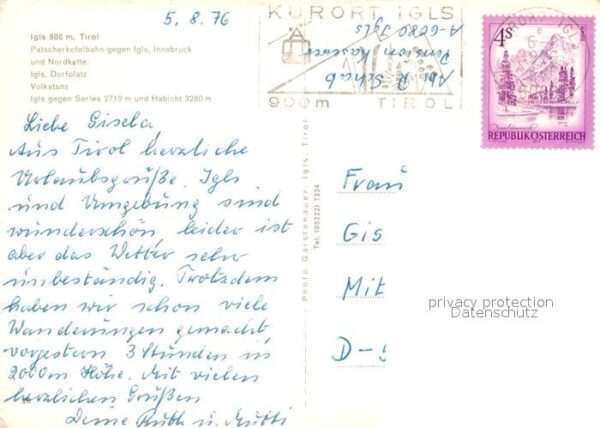 5. 8. 76
Igls 900 m, Tirol
Patscherkofelbahn gegen Igls, Innsbruck
und Nordkette.
Igls, Dorfplatz
Volkstanz
Igls gegen Serles 2719 m und Habicht 3280 m
KURORT IGLS
900m TIROL
Abs. R. Schab
Pension
A-6080 Igls
4S
REPUBLIK ÖSTERREICH
Liebe Gisela,
Aus Tirol herzliche
Urlaubsgrüße. Igls
und Umgebung sind
wunderschön leider ist
aber das Wetter sehr
unbeständig. Trotzdem
haben wir schon viele
Wanderungen gemacht,
vorgestern 3 Stunden in
2000m Höhe. Mit vielen
herzlichen Grüßen
Deine Ruth u. Mutti
Photo Garstenauer, Igls, Tirol
Tel. (05222) 7334
Frau
Gis
Mit
D-
privacy protection
Datenschutz